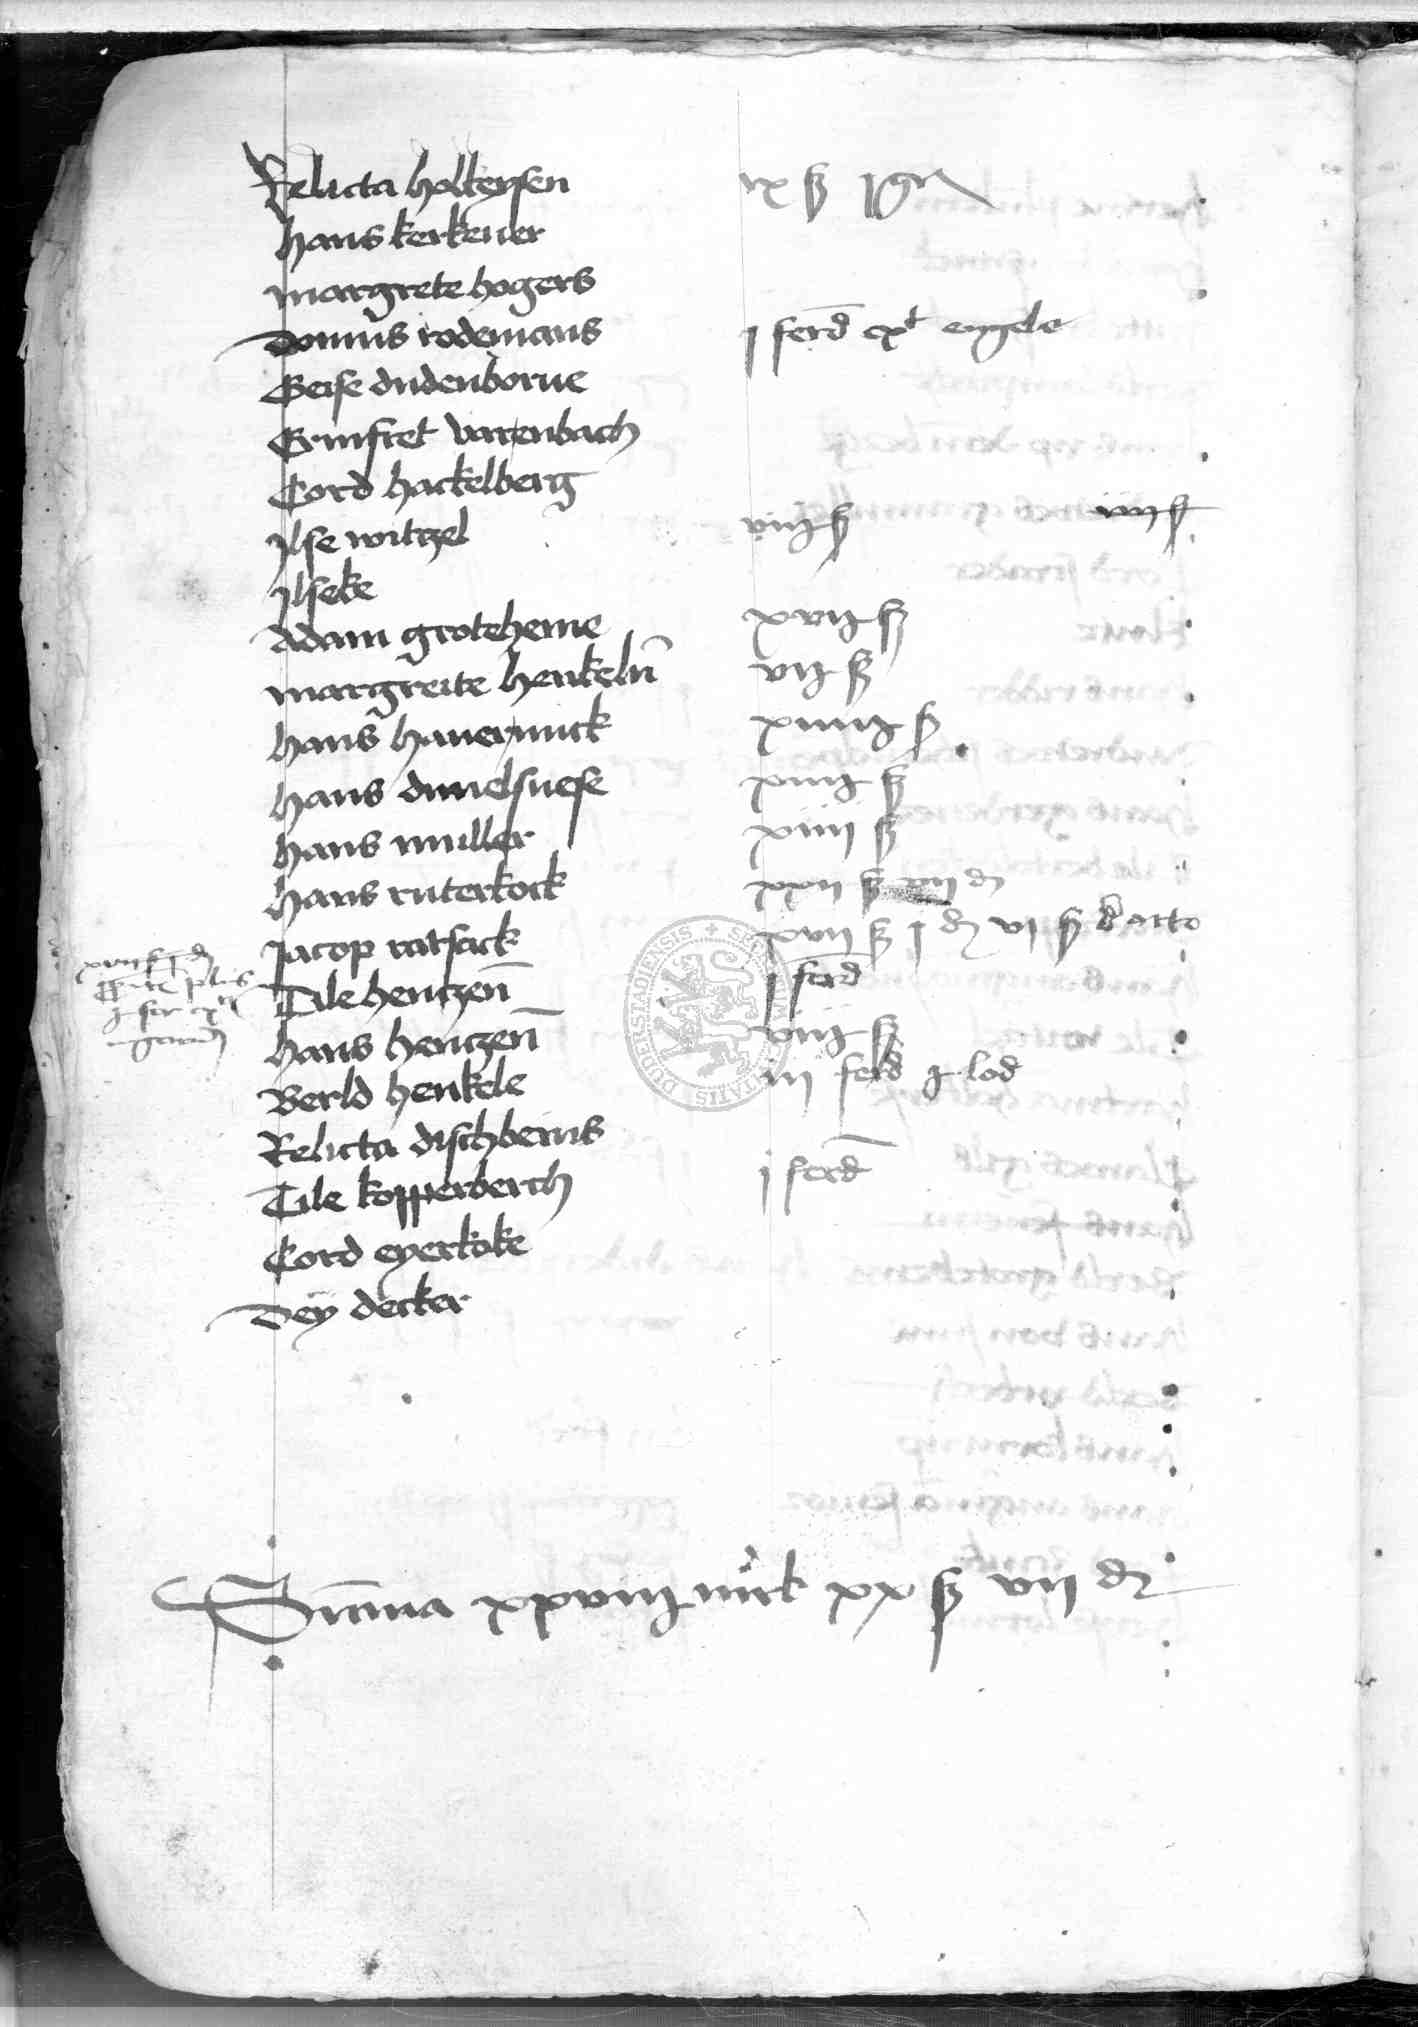 Relicta holteysen ix ß
hans kerkener
margrete hogers
Domus rodemans j ferd engele
Geise dudenborne
Ermfret varenbach
Cord hackelberg
Ilse witzel viij ß iiij ß
Ilseke
Adam groteheme xvij ß
margreite henkeln vij ß
hans hauermick xiiij ß
hans dunelsuese xiij ß
hans muller xiiij ß
hans ruterkock xxii ß vii d
Jacop ratsack xvii ß j d vi ß
Tile hentzen j ferd
hans hentzen viij ß
Berld henkele iii ferd j lod
Relicta dischbeins
Tile kopperberch j ferd
Cord eyerkoke
Dey decker
Summa xxviij mrck xx ß vii d